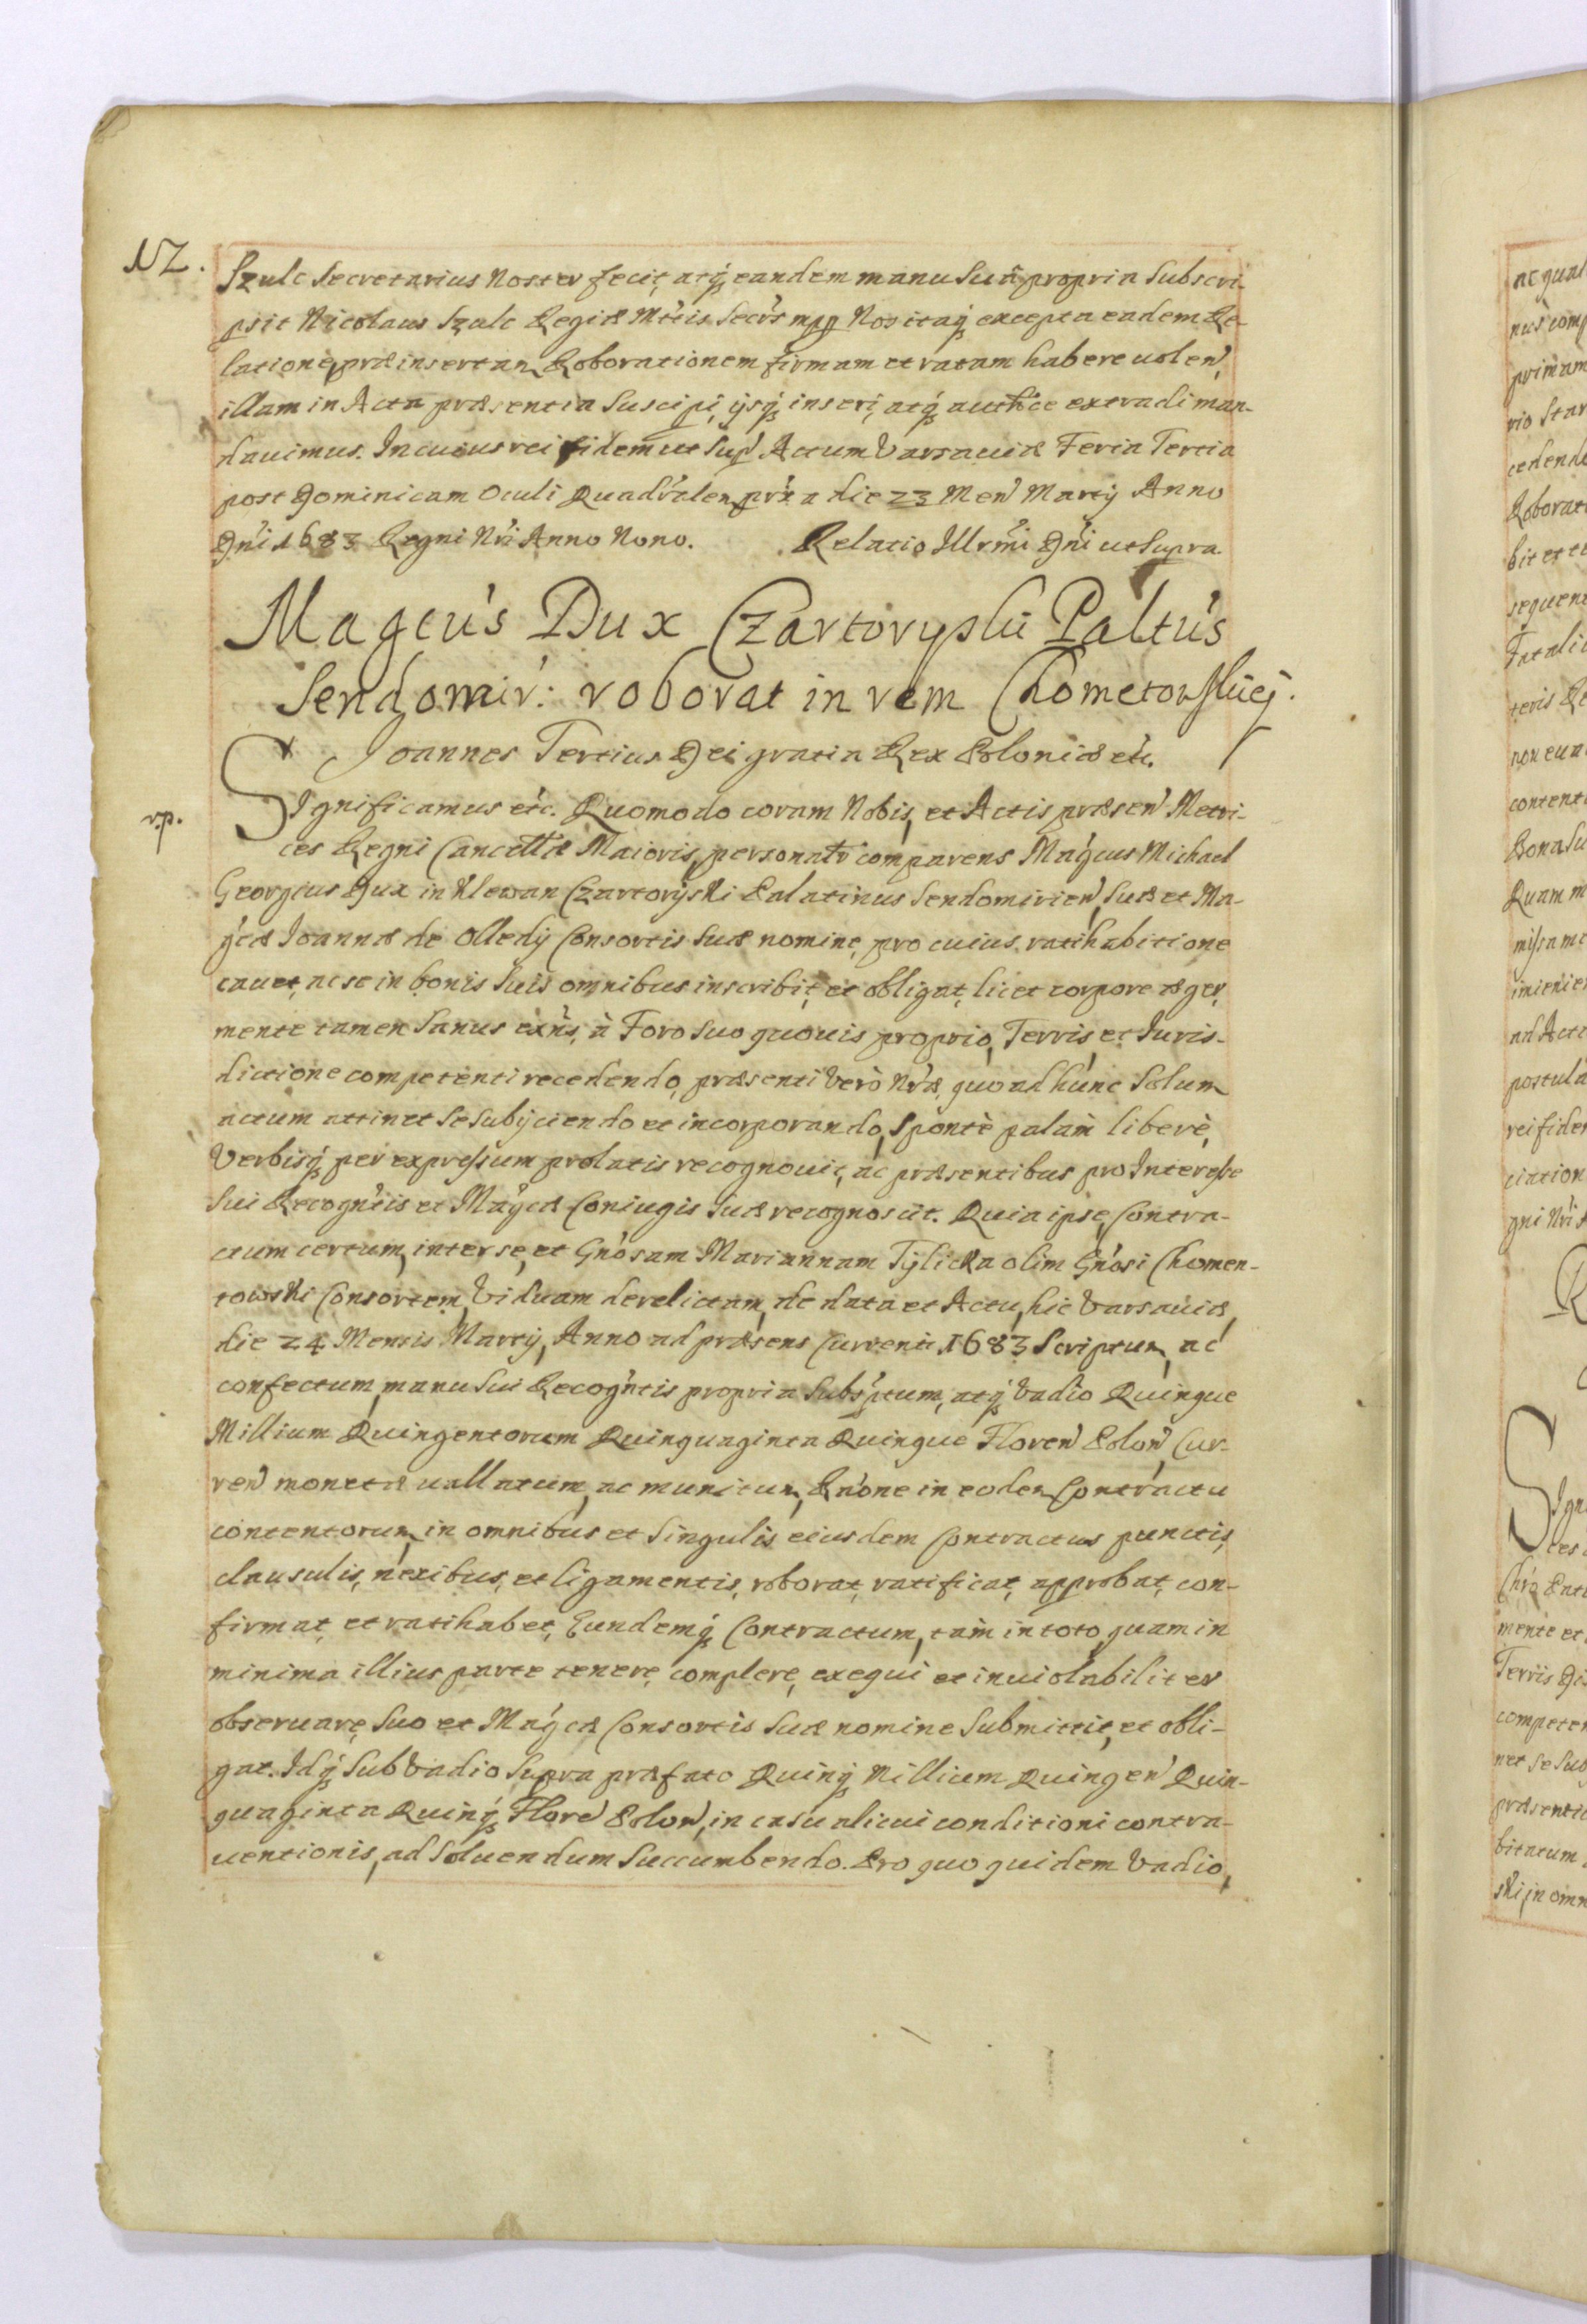 NZ.
Szulc Secretarius Noster fecit, atq́ eandem manu Suâ propria Subscri-
psit Nicolaus Szulc Regiæ Mttis Secr̃s mpp Nos itaq́ excepta eadem Re-
latione, præinsertam Roborationem firmam et ratam habere uolen̄,
illam in Acta præsentia Suscipi, ijsq́ inseri, atq́ auth̃ce extradi man-
dauimus. In cuius rei fidem ut Sup̄. Actum Varsauiæ Feria Tertia
post Dominicam Oculi Quadr̃alem pr̃x̃a die 23 Men̄ Martij Anno
Dñi 1683 Regni Nr̃i Anno Nono. Relatio Illrm̃i Dñi ut Supra.
Magcu's Dux Czartoryski Paltu's
Sendomir: roborat in rem Chometowskiej.
Joannes Tertius Dei gratia Rex Poloniæ etc.
v.p.
Significamus etc. Quomodo coram Nobis, et Actis præsen̄ Metri-
ces Regni Cancellæ Maioris, personalr̃ comparens Mag̃cus Michael
Georgius Dux in Klewan Czartoryski Palatinus Sendomirien̄, Suæ et Ma-
g̃cæ Joannæ de Olledy Consortis Suæ nomine, pro cuius ratihabitione
cauet, ac se in bonis Suis omnibus inscribit, et obligat, licet corpore æger,
mente tamen Sanus exñs, à Foro Suo quouis proprio, Terris, et Juris-
dictione competenti recedendo, præsenti verò Nr̃æ, quo ad hunc Solum
actum attinet Se Subijciendo et incorporando, Spontè palàm liberè,
Verbisq́ per expressum prolatis recognouit, ac præsentibus pro Interesse
Sui Recogñtis et Mag̃cæ Coniugis Suæ recognoscit. Quia ipse, Contra-
ctum certum, inter se, et Gñosam Mariannam Tylicka olim Gñosi Chomen-
towski Consortem, Viduam derelictam, de data et Actu, hic Varsauiæ,
die 24 Mensis Martij, Anno ad præsens Currenti 1683 Scriptum, ac
confectum, manu Sui Recogñtis propria Subs̃ptum, atq́ Vadio Quinque
Millium Quingentorum Quinquaginta Quinque Floren̄ Polon̄, Cur-
ren̄ monetæ uallatum, ac munitum, Rñone in eodem Contractu
contentorum, in omnibus et Singulis eiusdem Contractus punctis,
clausulis, nexibus, et ligamentis, roborat, ratificat, approbat, con-
firmat, et ratihabet, Eundemq́ Contractum, tàm in toto, quam in
minima illius parte tenere, complere, exequi et inuiolabiliter
obseruare, Suo et Mag̃cæ Consortis Suæ nomine Submittit, et obli-
gat. Idq́ Sub Vadio Supra præfato Quinq́ Millium Quingen̄ Quin-
quaginta Quinq́ Floren̄ Polon̄, in casu alicui conditioni contra-
uentionis, ad Soluendum Succumbendo. Pro quo quidem Vadio,